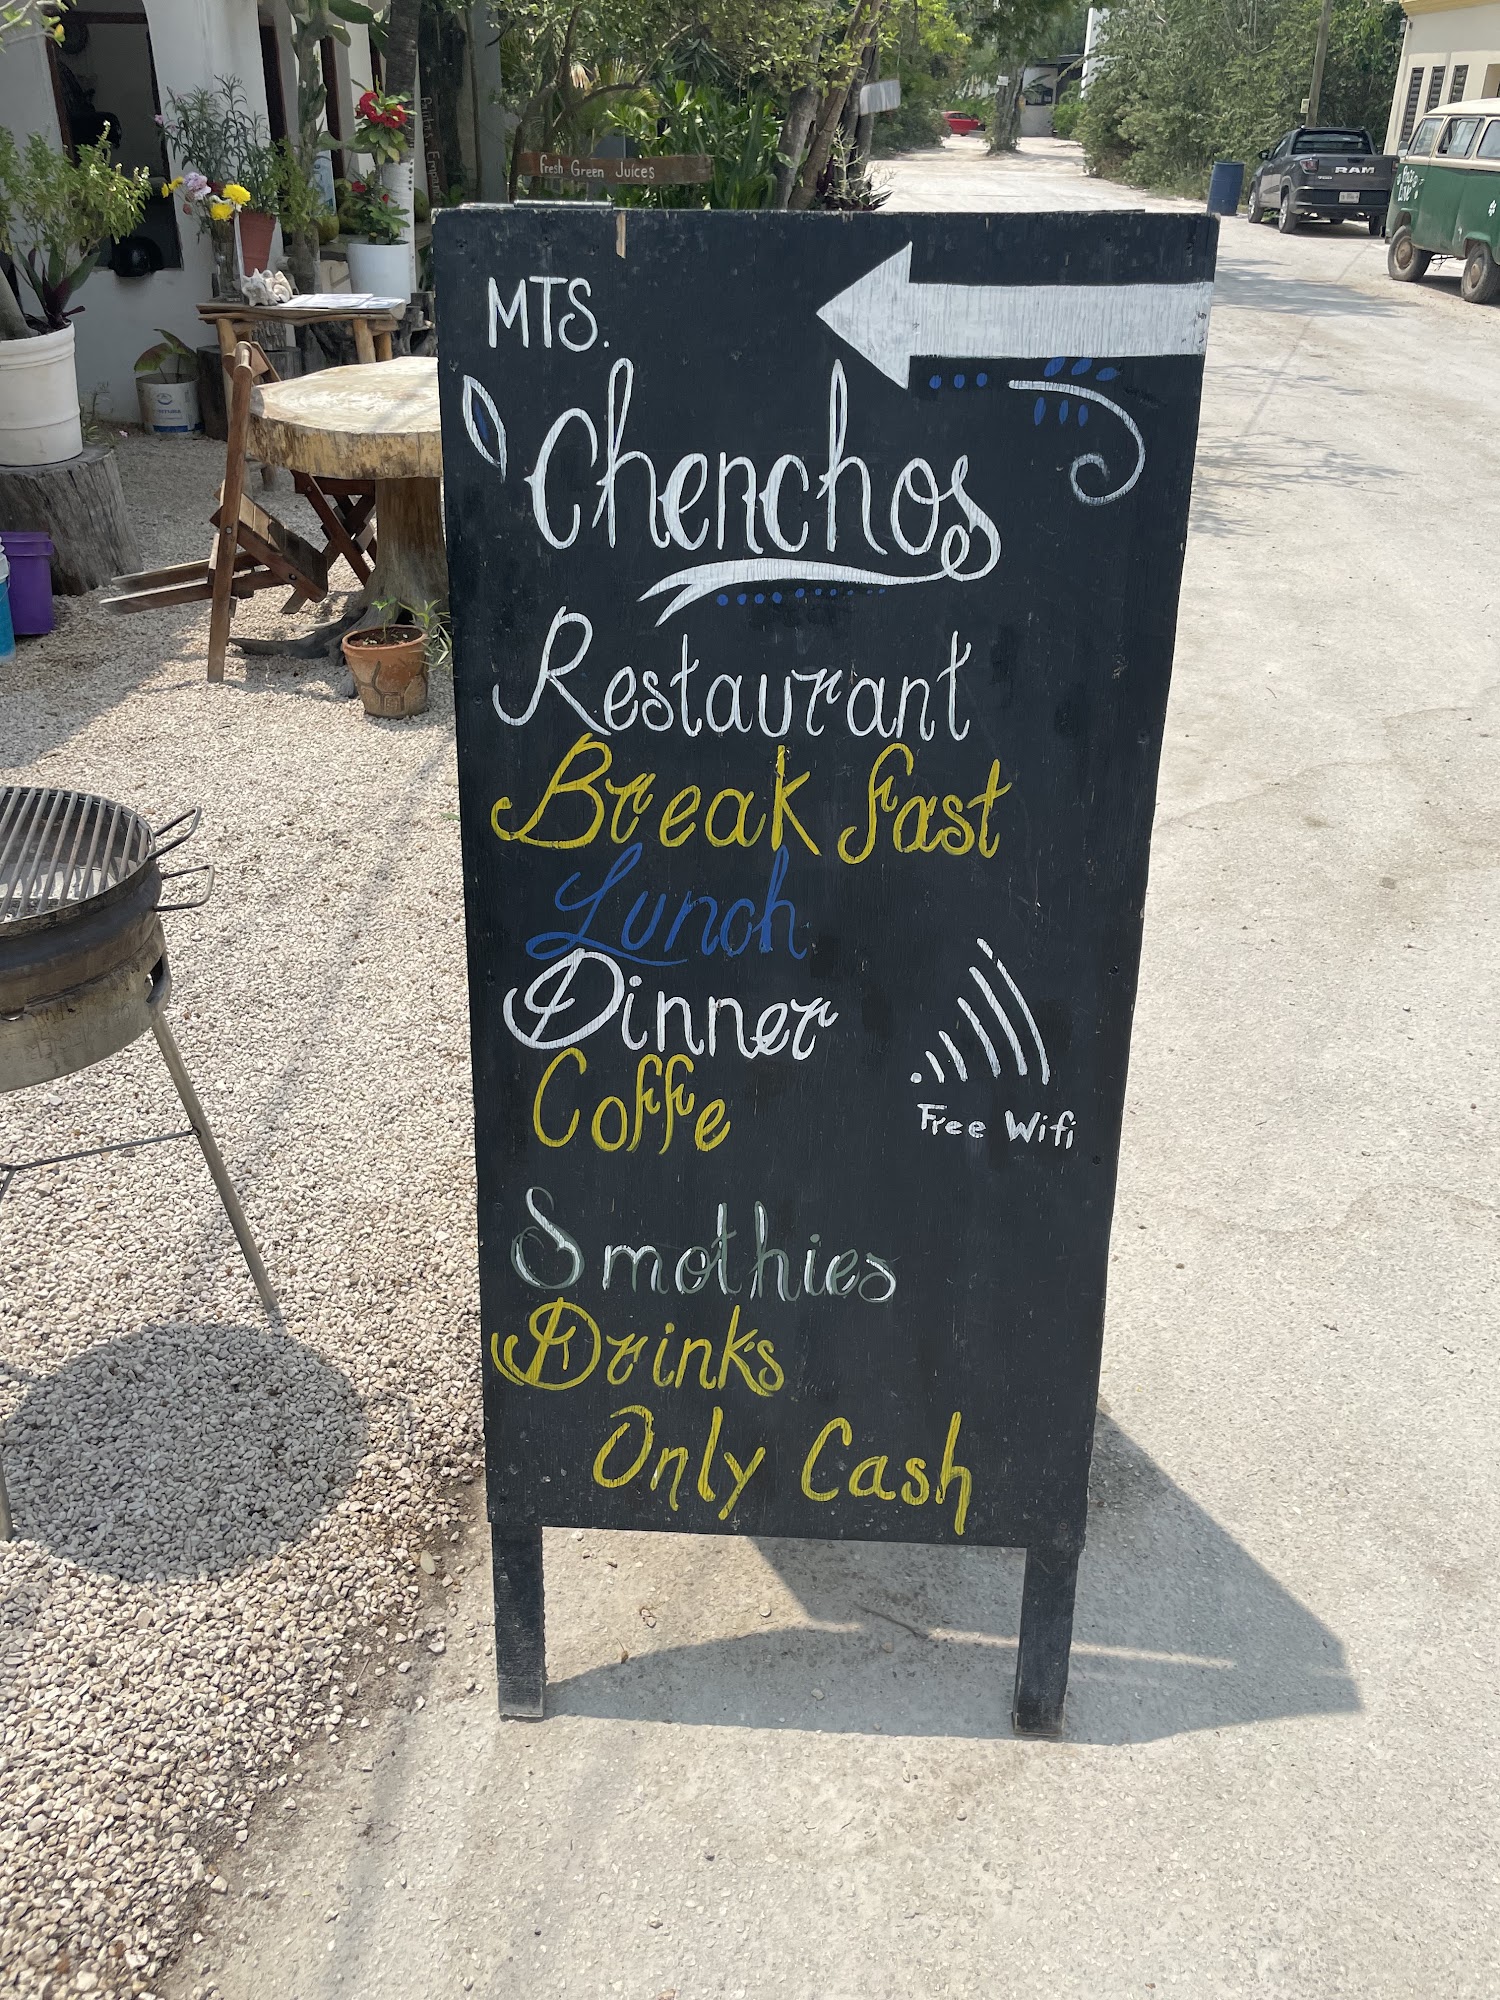 Fresh Green Juices
RAM
MTS.
Chenchos
Restaurant
Break fast
Lunch
Dinner
Coffe
Free Wifi
Smothies
Drinks
Only Cash